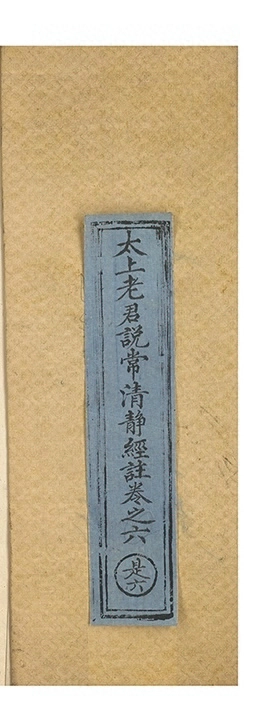 太上老君說常清靜經註卷之六
是六